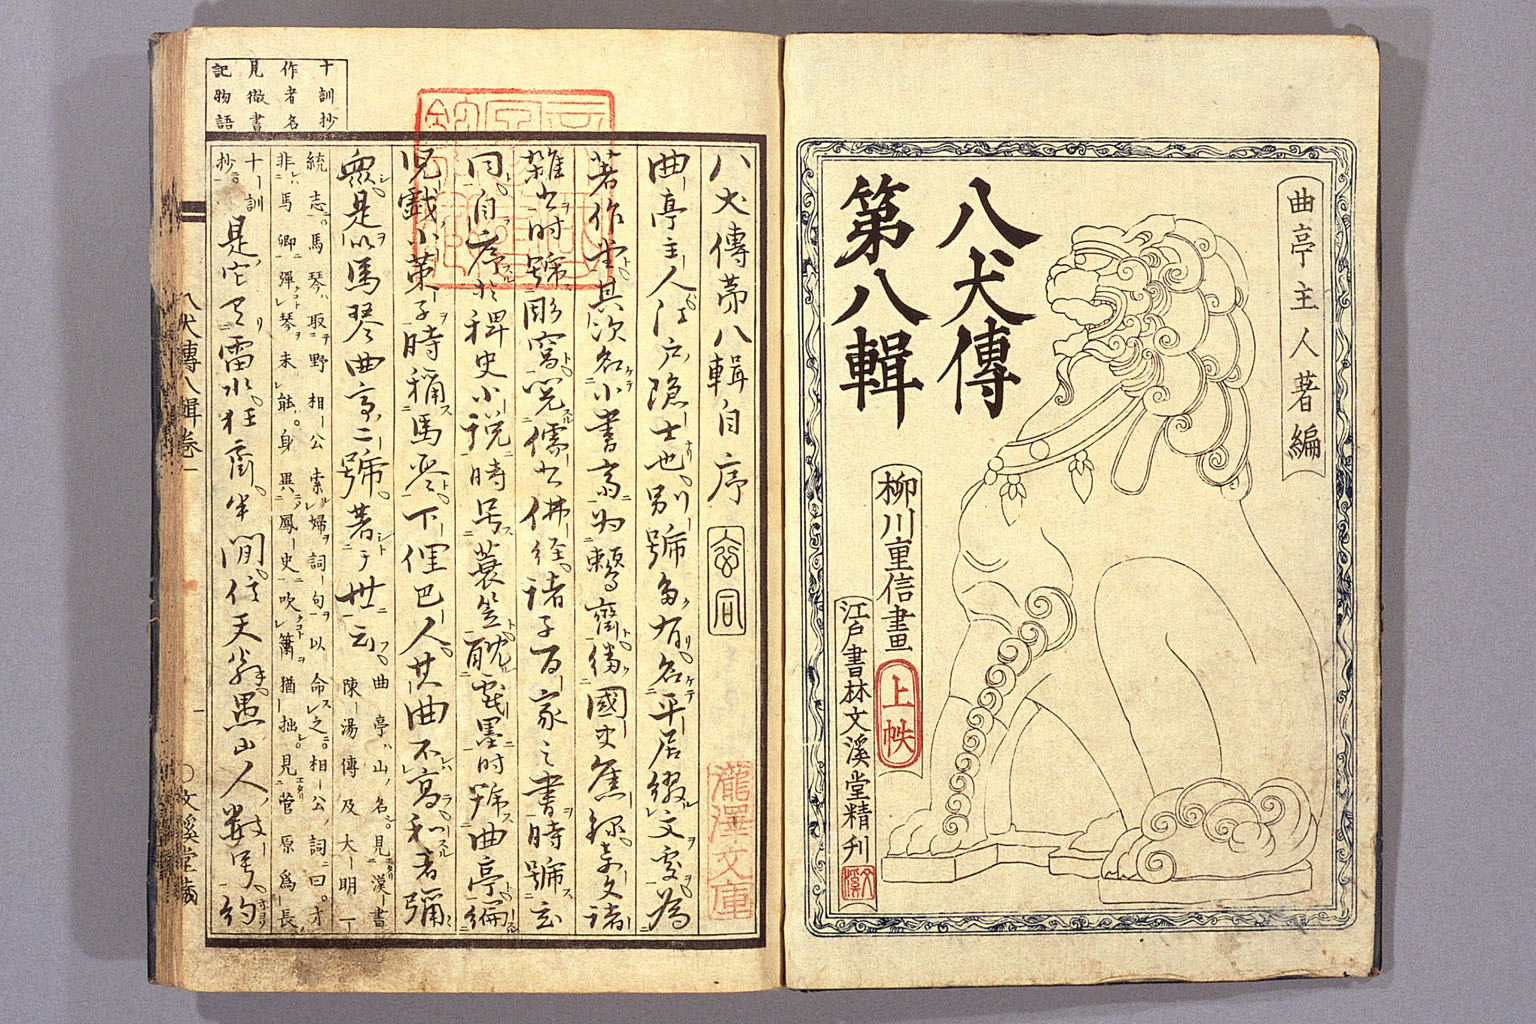 曲亭主人著編
八犬傳
第八輯
柳川重信畫
上帙
江戸書林文溪堂精刋
文溪
八犬傳第八輯自序
瀧澤文庫
曲亭主人江戸隱士也別號多有名平居綴文處為
著作堂其次名小書齋為
雜書時號彫窩閲儒書佛経諸子百家之書時號玄
同自序於稗史小説時号蓑笠耽戲墨時號曲亭編
児戲小策子時稱馬琴下俚巴人其曲不高和者彌
衆是以馬琴曲亭二號著于世云
曲亭山名見漢書
陳湯傳及大明一
統志馬琴取野相公索婦詞句以命之相公詞曰才
非馬卿彈琴未能身異鳳史吹簫猶拙見菅原爲長
十訓
抄
是它又雷水狂齋半閒住天翁愚山人數号約
十訓抄
作者名
見徹書
記物語
八犬傳八輯卷一
文溪堂藏